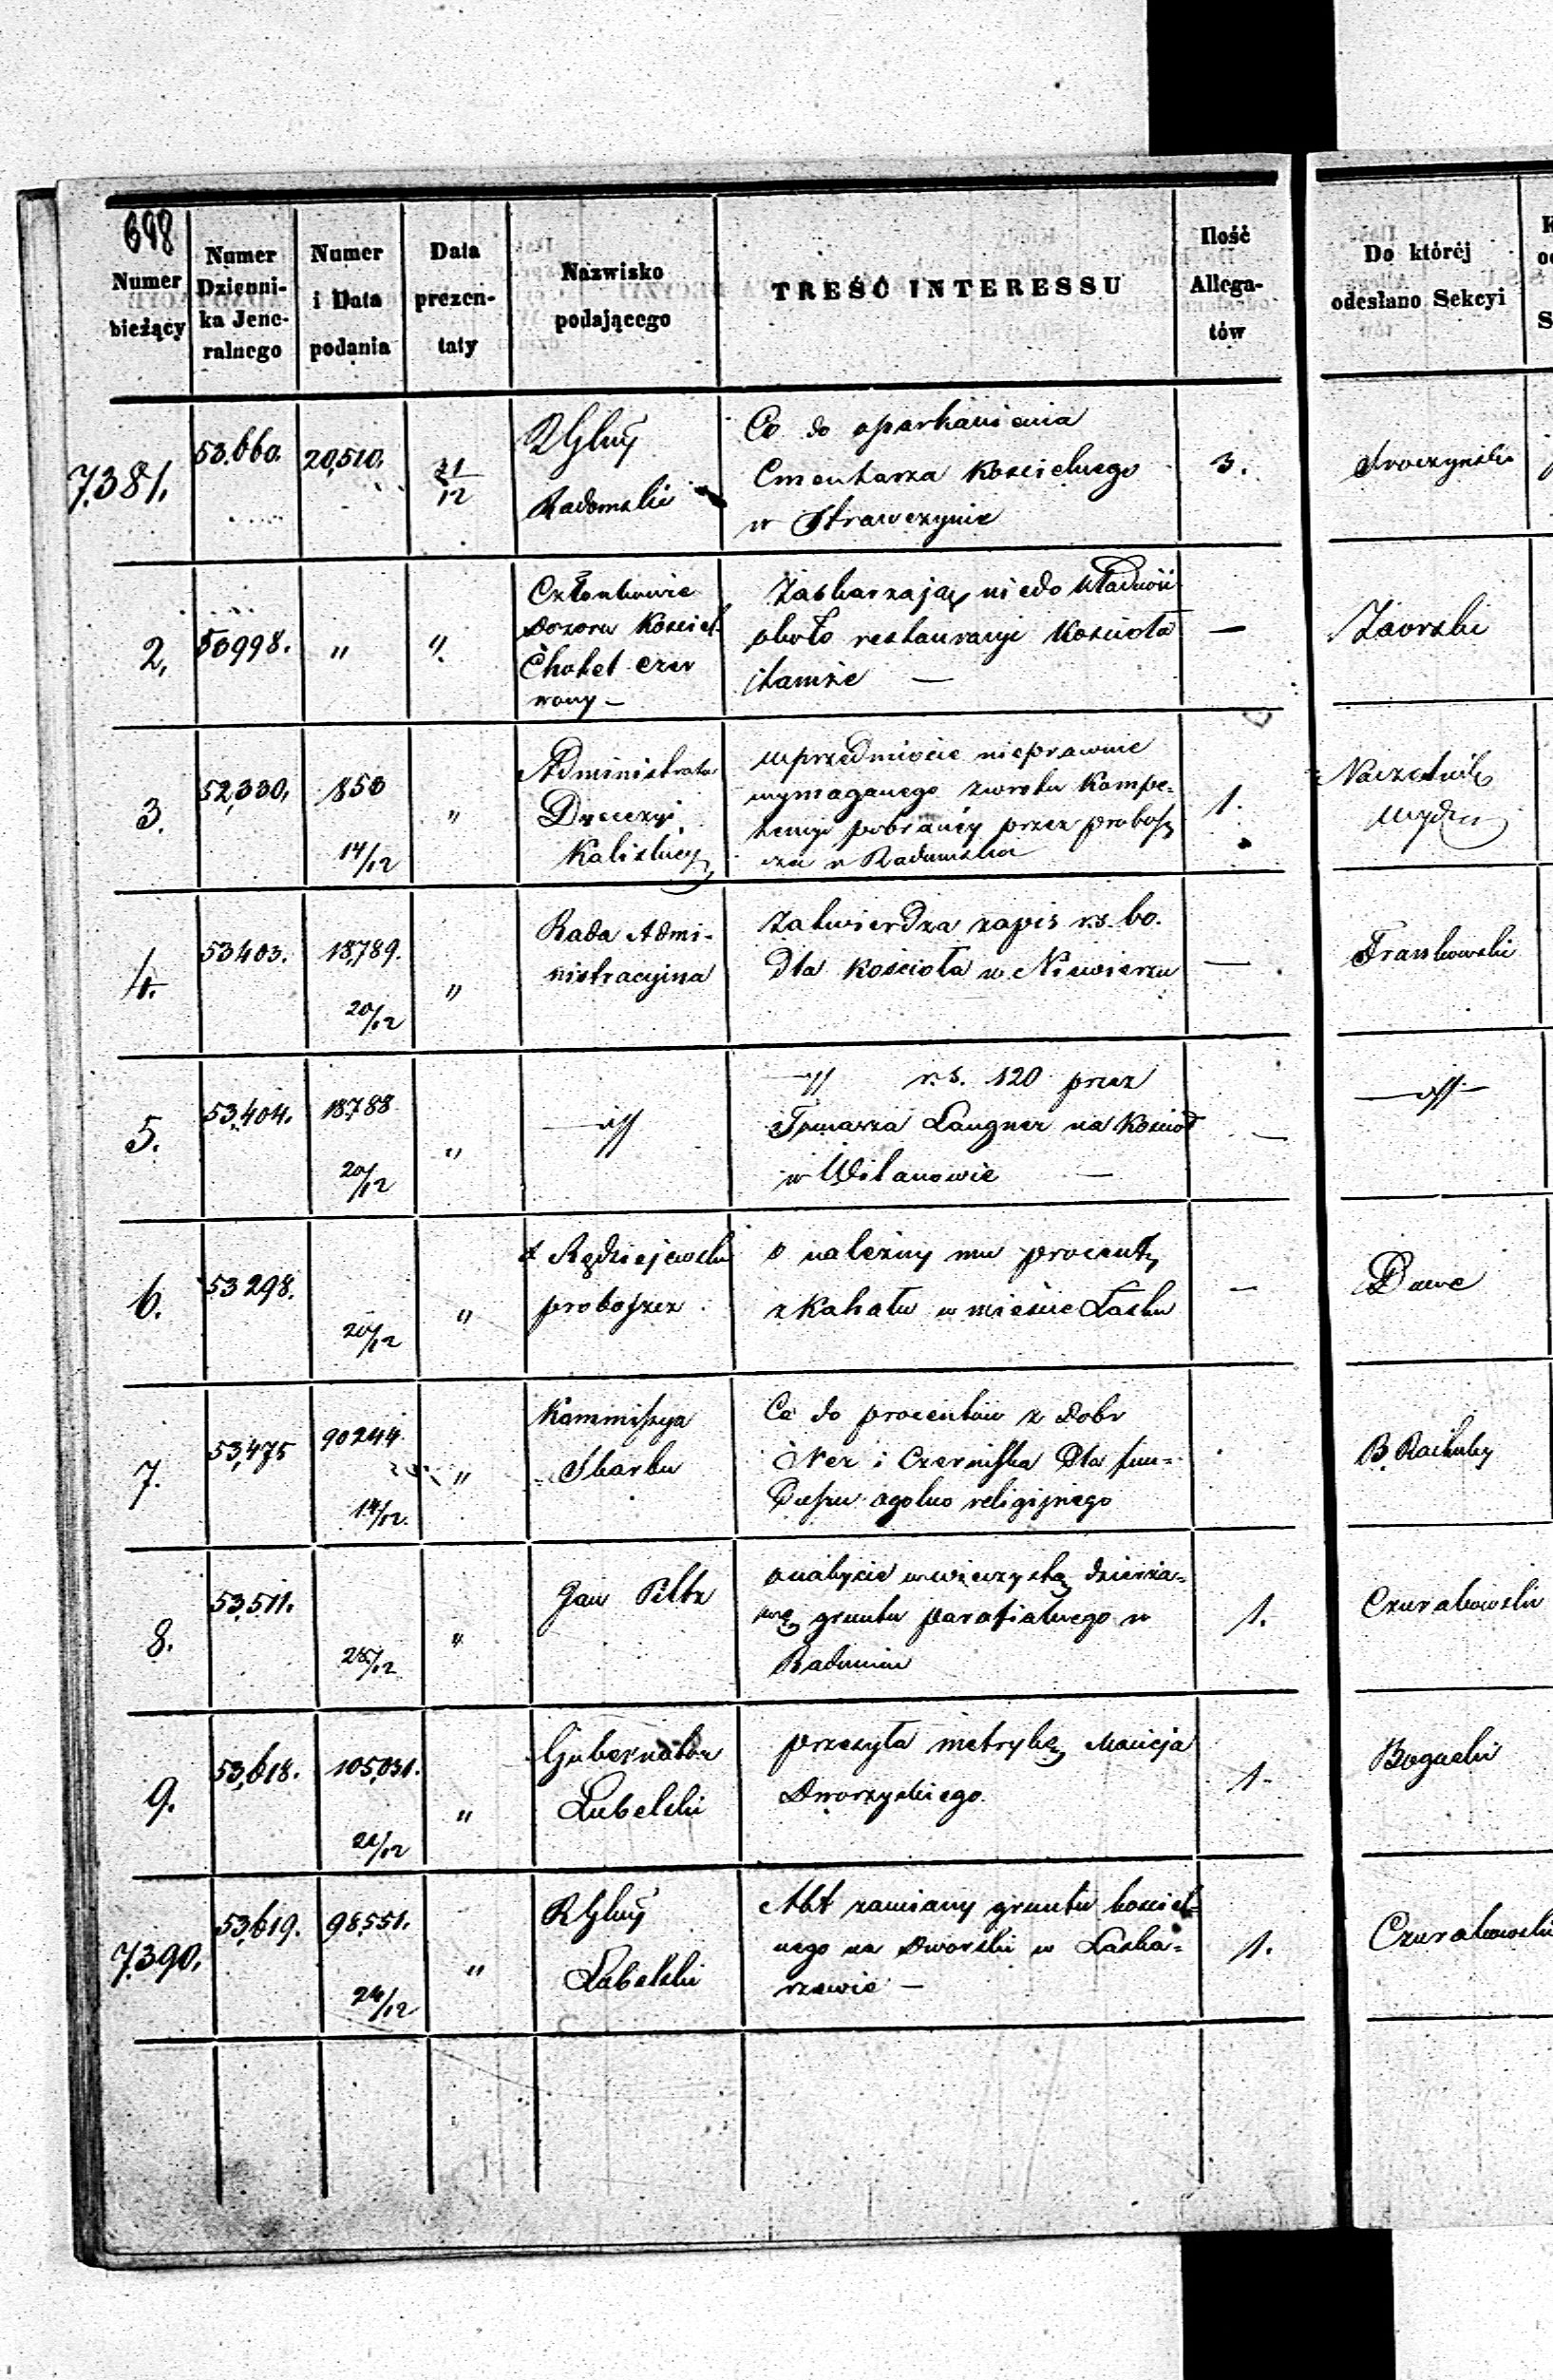 698
Numer bieżący | Numer Dzienni-ka Jene-ralnego | Numer i Data podania | Data prezen-taty | Nazwisko podającego | TREŚĆ INTERESSU | Ilość Allega-tów | Do którėj odesłano Sekcyi
7381. | 53.660. | 20,510. | 21/12 | RGlny Radomski | Co do oparkanienia
Cmentarza Kościelnego
w Strawczynie | 3. | Troczyński
2, | 50998. | " | " | Członkowie
Dozoru Kościel.
Chotel Czer
wony – | Zaskarzają
około restauracyi Kościoła
tamże — | — | Zaorski
3. | 52,330, | 850
14/12 | " | Administrator
Dyecezyi
Kaliskiey | w przedmiocie nieprawnie
wymaganego zwrotu Kompe=
tencyi pobraney przez probosz
cza w Radomsku | 1. | Naczelnik
Wydzu
4. | 53403. | 18,789.
20/12 | " | Rada Admi-
nistracyjna | Zatwierdza zapis r.s. 60.
Dla Kościoła w Niewierzu | — | Frankowski
5. | 53,404. | 18788
20/12 | " | —"— | —" r.s. 120 przez
Tomasza Langner na Kościoł
w Wilanowie — | — | —"—
6. | 53298. | 20/12 | " | X Rędziejewski
proboszcz | o należny mu procent
z Kahału w mieście Łasku | — | Dawe
7. | 53,475 | 90244
14/12. | " | Kommissya
Skarbu | Co do procentów z Dobr
Ner i Czerniska Dla fun=
Duszu ogolno religijnego | B. Rachuby
8. | 53,511. | 28/12 | " | Jan Piltz | o nabycie w wieczystą dzierża=
wę gruntu parafialnego w
Radzminie | 1. | Czurakowski
9. | 53,618. | 105,031.
21/12 | " | Gubernator
Lubelski | przesyła metrykę Macieja
Dworzyckiego | 1. | Bogucki
7390. | 53,619. | 98,551.
24/12 | " | RGlny
Lubelski | Akt zamiany gruntu kościel=
nego na Dworski w Łaska=
rzewie — | 1. | Czurakowski